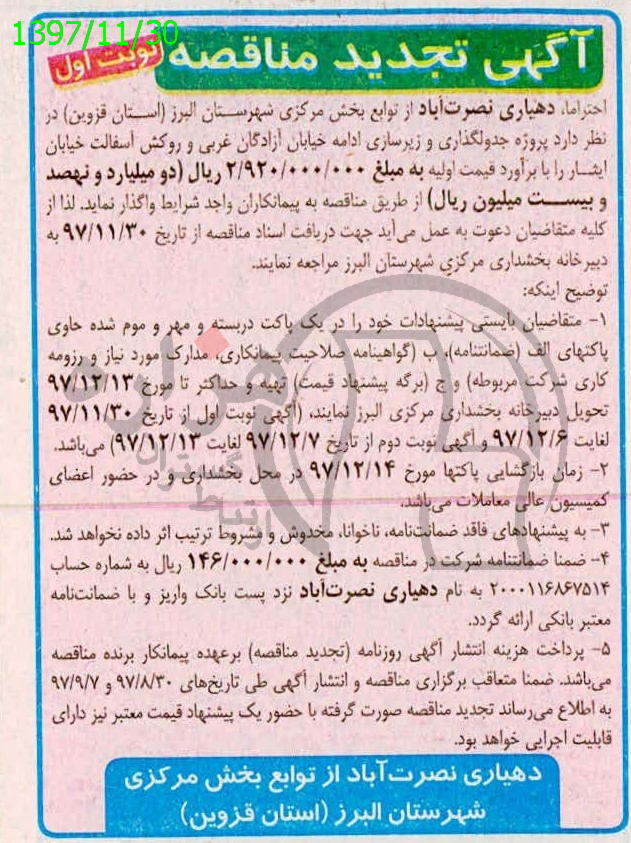 1397/11/30
آگهی تجدید مناقصه
نوبت اول
احتراما، دهیاری نصرت‌آباد از توابع بخش مرکزی شهرستان البرز (استان قزوین) در
نظر دارد پروژه جدولگذاری و زیرسازی ادامه خیابان آزادگان غربی و روکش آسفالت خیابان
ایثار را با برآورد قیمت اولیه به مبلغ ۲/۹۲۰/۰۰۰/۰۰۰ ریال (دو میلیارد و نهصد
و بیست میلیون ریال) از طریق مناقصه به پیمانکاران واجد شرایط واگذار نماید. لذا از
کلیه متقاضیان دعوت به عمل می‌آید جهت دریافت اسناد مناقصه از تاریخ ۹۷/۱۱/۳۰ به
دبیرخانه بخشداری مرکزی شهرستان البرز مراجعه نمایند.
توضیح اینکه:
۱- متقاضیان بایستی پیشنهادات خود را در یک پاکت دربسته و مهر و موم شده حاوی
پاکتهای الف (ضمانتنامه)، ب (گواهینامه صلاحیت پیمانکاری، مدارک مورد نیاز و رزومه
کاری شرکت مربوطه) و ج (برگه پیشنهاد قیمت) تهیه و حداکثر تا مورخ ۹۷/۱۲/۱۳
تحویل دبیرخانه بخشداری مرکزی البرز نمایند، (آگهی نوبت اول از تاریخ ۹۷/۱۱/۳۰
لغایت ۹۷/۱۲/۶ و آگهی نوبت دوم از تاریخ ۹۷/۱۲/۷ لغایت ۹۷/۱۲/۱۳) می‌باشد.
۲- زمان بازگشایی پاکتها مورخ ۹۷/۱۲/۱۴ در محل بخشداری و در حضور اعضای
کمیسیون عالی معاملات می‌باشد.
۳- به پیشنهادهای فاقد ضمانت‌نامه، ناخوانا، مخدوش و مشروط ترتیب اثر داده نخواهد شد.
۴- ضمنا ضمانتنامه شرکت در مناقصه به مبلغ ۱۴۶/۰۰۰/۰۰۰ ریال به شماره حساب
۲۰۰۰۱۱۶۸۶۷۵۱۴ به نام دهیاری نصرت‌آباد نزد پست بانک واریز و با ضمانت‌نامه
معتبر بانکی ارائه گردد.
۵- پرداخت هزینه انتشار آگهی روزنامه (تجدید مناقصه) برعهده پیمانکار برنده مناقصه
می‌باشد. ضمنا متعاقب برگزاری مناقصه و انتشار آگهی طی تاریخ‌های ۹۷/۸/۳۰ و ۹۷/۹/۷
به اطلاع می‌رساند تجدید مناقصه صورت گرفته با حضور یک پیشنهاد قیمت معتبر نیز دارای
قابلیت اجرایی خواهد بود.
دهیاری نصرت‌آباد از توابع بخش مرکزی
شهرستان البرز (استان قزوین)